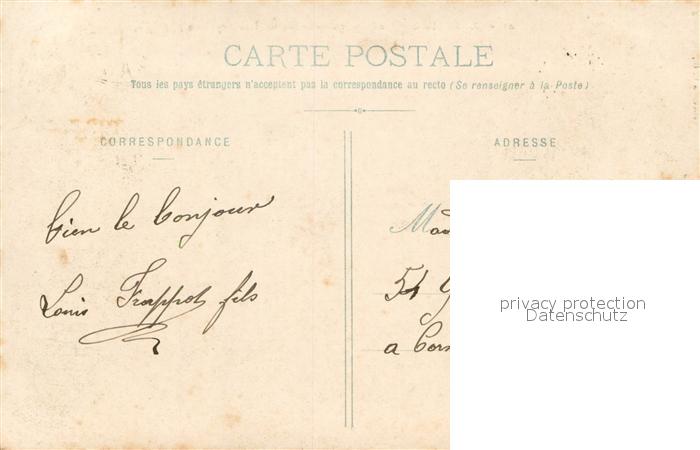 CARTE POSTALE
Tous les pays étrangers n'acceptent pas la correspondance au recto (Se renseigner à la Poste)
CORRESPONDANCE
ADRESSE
bien le bonjour
Louis Frappot fils
Mad
54
a
privacy protection
Datenschutz